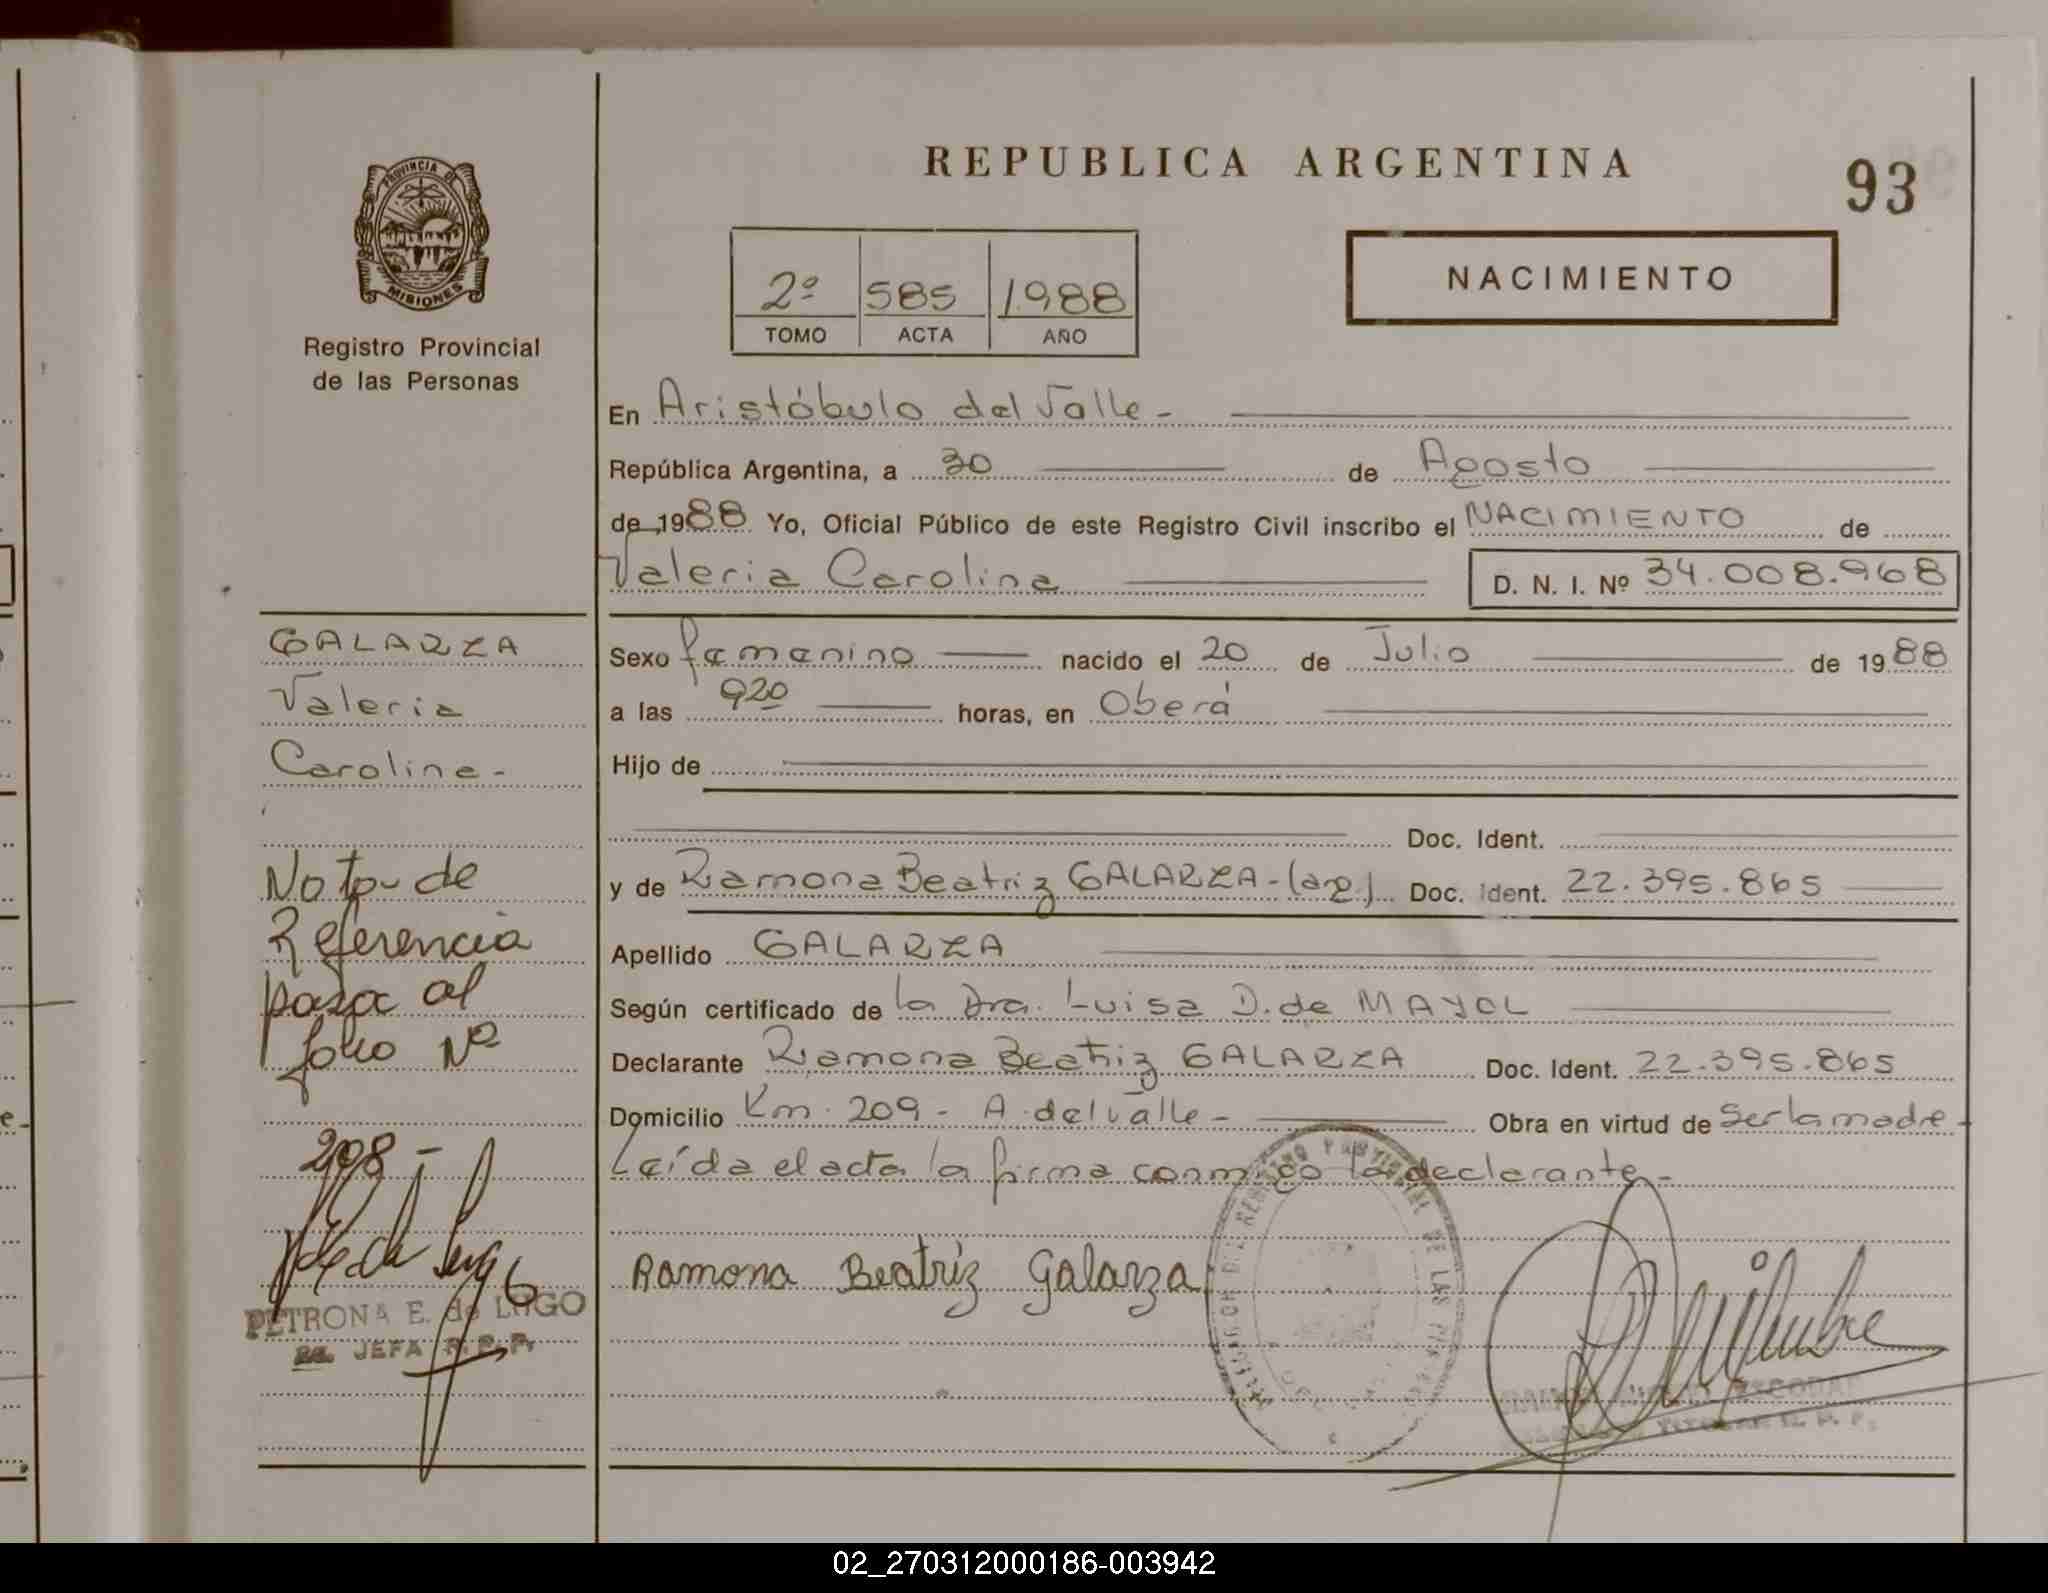 REPUBLICA ARGENTINA
93
PROVINCIA DE
MISIONES
Registro Provincial
de las Personas
2º 585 1988
TOMO ACTA AÑO
NACIMIENTO
En Aristóbulo del Valle -
República Argentina, a 30 de Agosto
de 1988 Yo, Oficial Público de este Registro Civil inscribo el NACIMIENTO de
Valeria Carolina D. N. I. Nº 34.008.968
Sexo femenino nacido el 20 de Julio de 1988
a las 920 horas, en Oberá
Hijo de
Doc. Ident.
y de Ramona Beatriz GALARZA - (arg.) Doc. Ident. 22.395.865
Apellido GALARZA
Según certificado de la Dra. Luisa D. de MAYOL
Declarante Ramona Beatriz GALARZA Doc. Ident. 22.395.865
Domicilio Km. 209 - A. del Valle - Obra en virtud de ser la madre -
Leída el acta la firma conmigo la declarante -
Ramona Beatríz Galarza
GALARZA
Valeria
Carolina -
Nota de
Referencia
pasa al
folio Nº
208 -
PETRONA E. de LUGO
JEFA R. P. P.
REGISTRO PROVINCIAL DE LAS
02_270312000186-003942